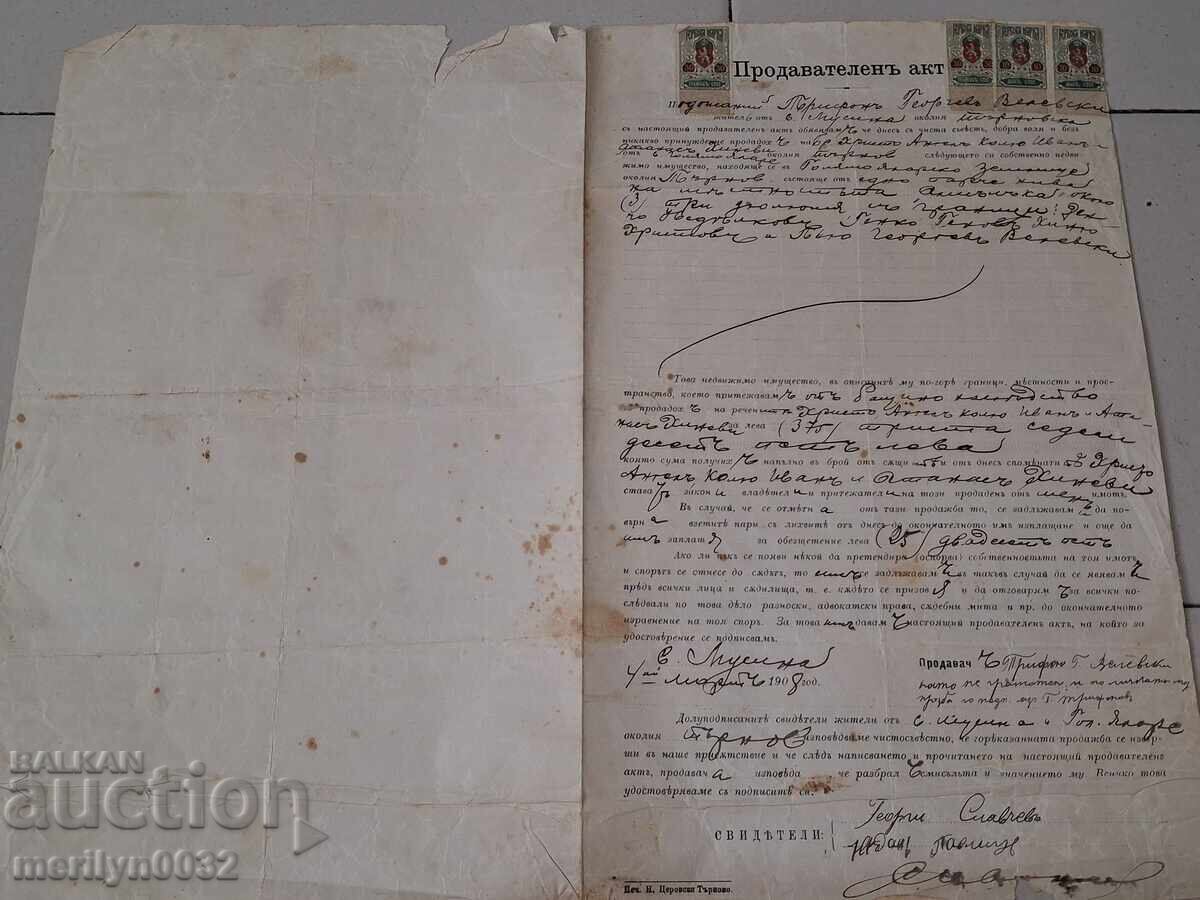 Продавателенъ актъ
Подписаний Трифонъ Георгевъ Велевски
жителъ отъ с. Мусина околия Търновска
съ настоящий продавателенъ актъ обявявамъ че днесъ съ чиста съвѣсть, добра воля и безъ
никакво принуждение продадохъ на Христо Ангелъ Колю Иванъ и
Атанасъ Хиневи
отъ с. околия Търнов. слѣдующето си собственно недви-
жимо имущество, находяще се въ Голямо Яларско Землище
околия Търнов. состояще отъ едно парче нива
на мѣстностьта около
(3) три дюлюма съ граници:
Генко Геновъ Хиню
Христовъ и Георгевъ Велевски.
Това недвижимо имущество, въ описанитѣ му по-горѣ граници, мѣстности и про-
странство, което притежавамъ отъ бащино наследство
продадохъ на реченитѣ Христо Ангелъ Колю Иванъ и Ата-
насъ Хиневи за лева (375) триста седем
десетъ петь лева
които сума получихъ напълно въ брой отъ сѫщитѣ и отъ днесъ споменатитѣ Христо
Ангелъ Колю Иванъ и Атанасъ Хиневи
ставатъ законни владѣтели и притежатели на този продаденъ отъ мене имотъ.
Въ случай, че се отмѣтна отъ тази продажба то, се задлъжавамъ да по-
върна взетитѣ пари съ лихвитѣ отъ днесъ до окончателното имъ изплащане и още да
имъ заплатя за обезщетение лева (25) двадесетъ петь
Ако ли пъкъ се появи нѣкой да претендира (оспорва) собственностьта на тоя имотъ
и спорътъ се отнесе до сѫдътъ, то имъ се задлъжавамъ въ такъвъ случай да се явявамъ
прѣдъ всички лица и сѫдилища, т. е. кѫдѣто се призова и да отговарямъ за всички по-
слѣдвали по това дѣло разноски, адвокатски права, сѫдебни мита и пр. до окончателното
изравнение на тоя споръ. За това имъ давамъ настоящий продавателенъ актъ, на който за
удостовѣрение се подписвамъ.
с. Мусина
4ий Мартъ 1908 год.
Продавачъ Трифонъ Г. Велевски
като не грамотен и по личната му
проба го подп. Г. Трифоновъ
Долуподписанитѣ свидѣтели жители отъ с. Мусина и Гол. Яларе
околия Търнов. изповѣдваме чистосъвѣстно, че горѣказанната продажба се извър-
ши въ наше присѫтствие и че слѣдъ написването и прочитането на настоящий продавателенъ
актъ, продавача изповѣда че разбралъ смисълъта и значението му Всичко това
удостовѣряваме съ подписитѣ си.
СВИДѢТЕЛИ:
Георги Славчевъ
Печ. Н. Церовски Търново.
BALKAN
auction
merilyn0032